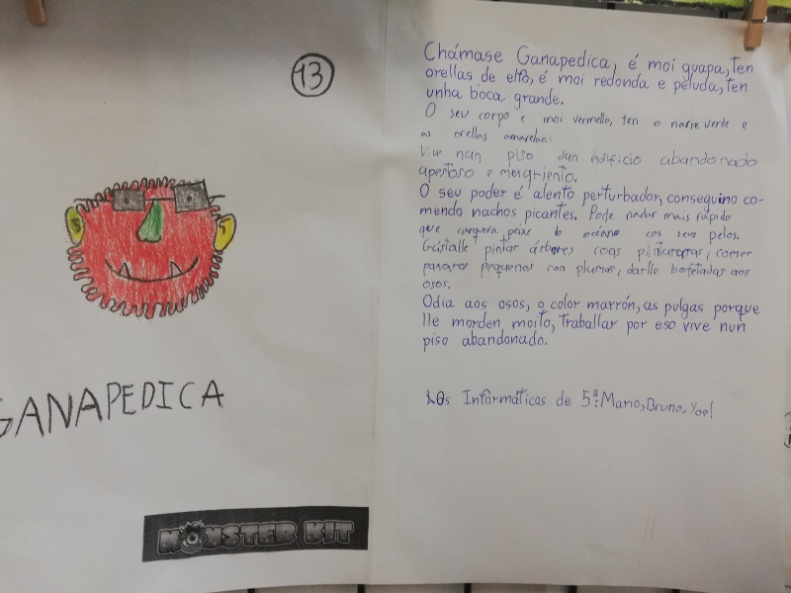 13
GANAPEDICA
MONSTER KIT
Chámase Ganapedica, é moi guapa, ten
orellas de elfo, é moi redonda e peluda, ten
unha boca grande.
O seu corpo e moi vermello, ten o narie verde e
as orellas amarelas.
Vive nun piso dun edificio abandonado
apestoso e mugriento.
O seu poder é alento perturbador, conseguino co-
mendo nachos picantes. Pode nadar mais rápido
que calquera peixe do océano cos seus pelos.
Gústalle pintar árbores coas pinturas, comer
paxaros pequenos con plumas, darlle bofetadas aos
osos.
Odia aos osos, o color marrón, as pulgas porque
lle morden moito, traballar por eso vive nun
piso abandonado.
Os Informáticos de 5º: Mario, Bruno, Yoel